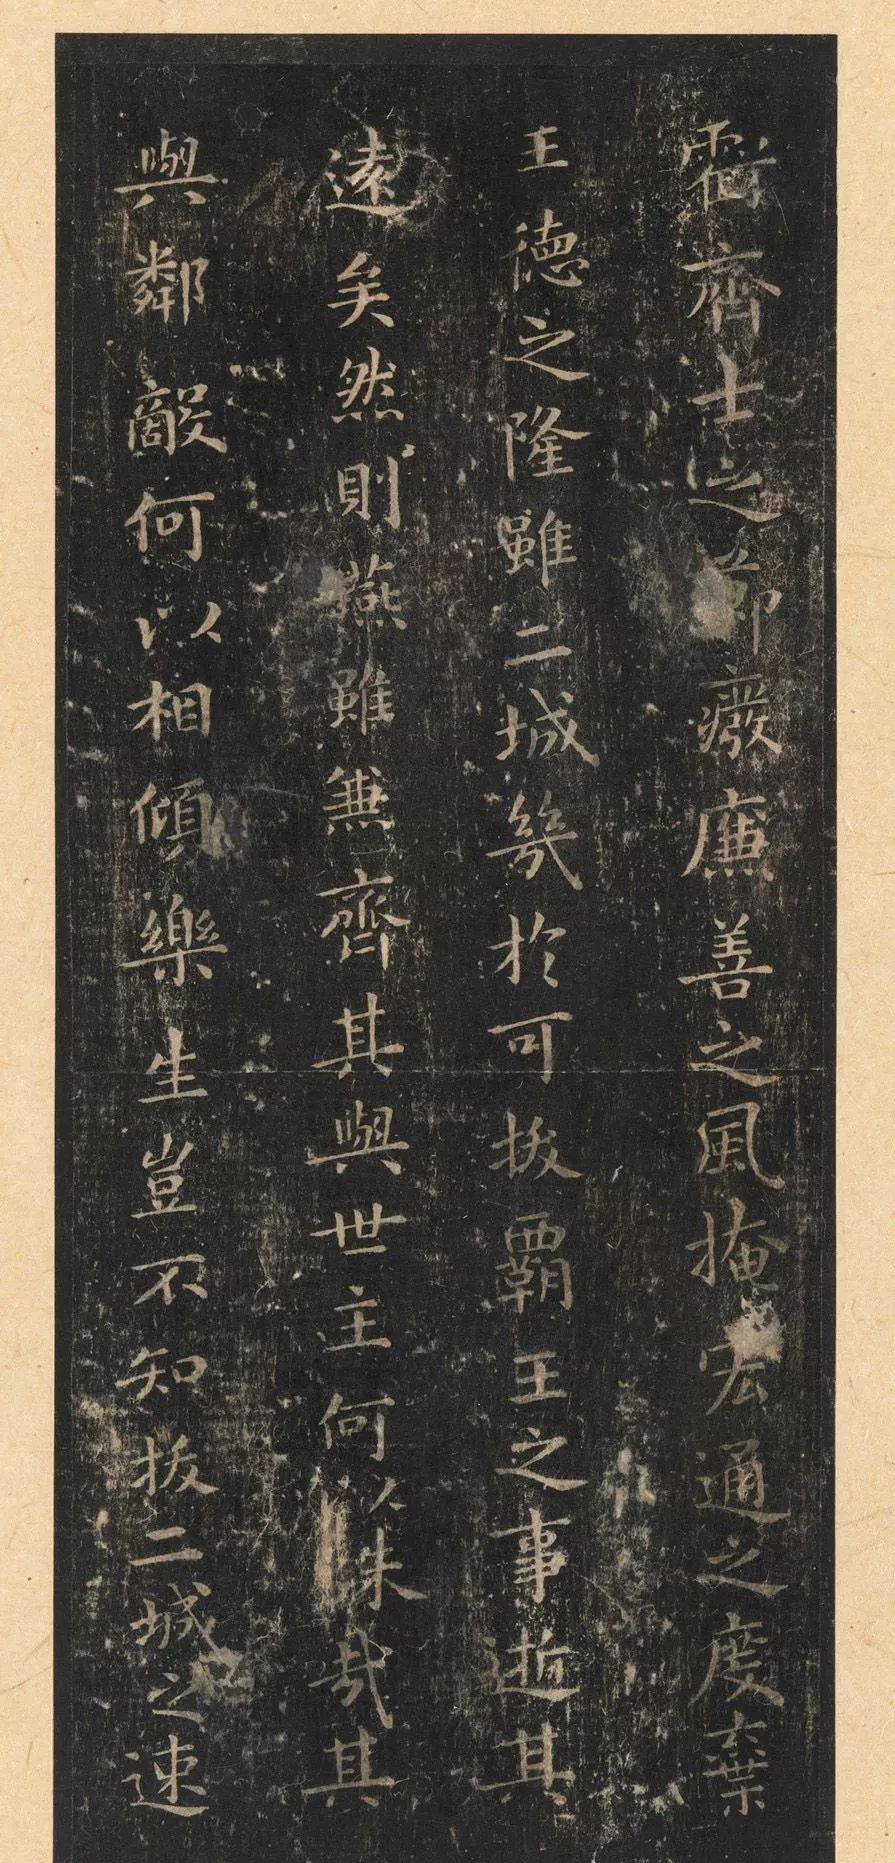 齊士之節癈廉善之風掩宏通之度棄
王德之隆雖二城幾於可拔霸王之事逝其
遠矣然則燕雖兼齊其與世主何以殊哉其
與鄰敵何以相傾樂生豈不知拔二城之速